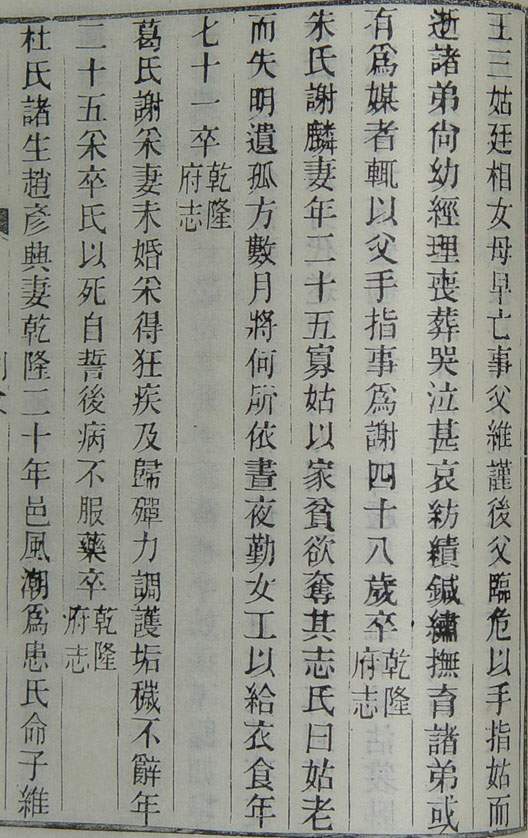 王三姑廷相女母早亡事父維謹後父臨危以手指姑而
逝諸弟尙幼經理喪葬哭泣甚哀紡績鍼繡撫育諸弟或
有爲媒者輒以父手指事爲謝四十八歲卒乾隆府志
朱氏謝麟妻年二十五寡姑以家貧欲奪其志氏曰姑老
而失明遺孤方數月將何所依晝夜勤女工以給衣食年
七十一卒乾隆府志
葛氏謝采妻未婚采得狂疾及歸殫力調護垢穢不辭年
二十五采卒氏以死自誓後病不服藥卒乾隆府志
杜氏諸生趙彥興妻乾隆二十年邑風潮爲患氏命子維